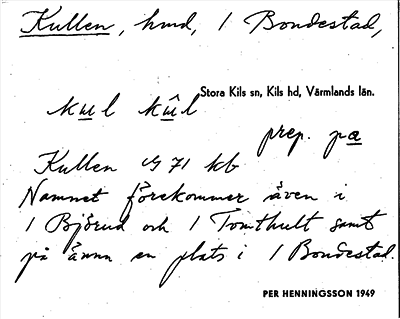 Kullen, hmd, 1 Bondestad,
Stora Kils sn, Kils hd, Värmlands län.
kul kûl
prep. på
Kullen 71 kb
Namnet förekommer även i
1 Björud och 1 Tomthult samt
på ännu en plats i 1 Bondestad.
PER HENNINGSSON 1949